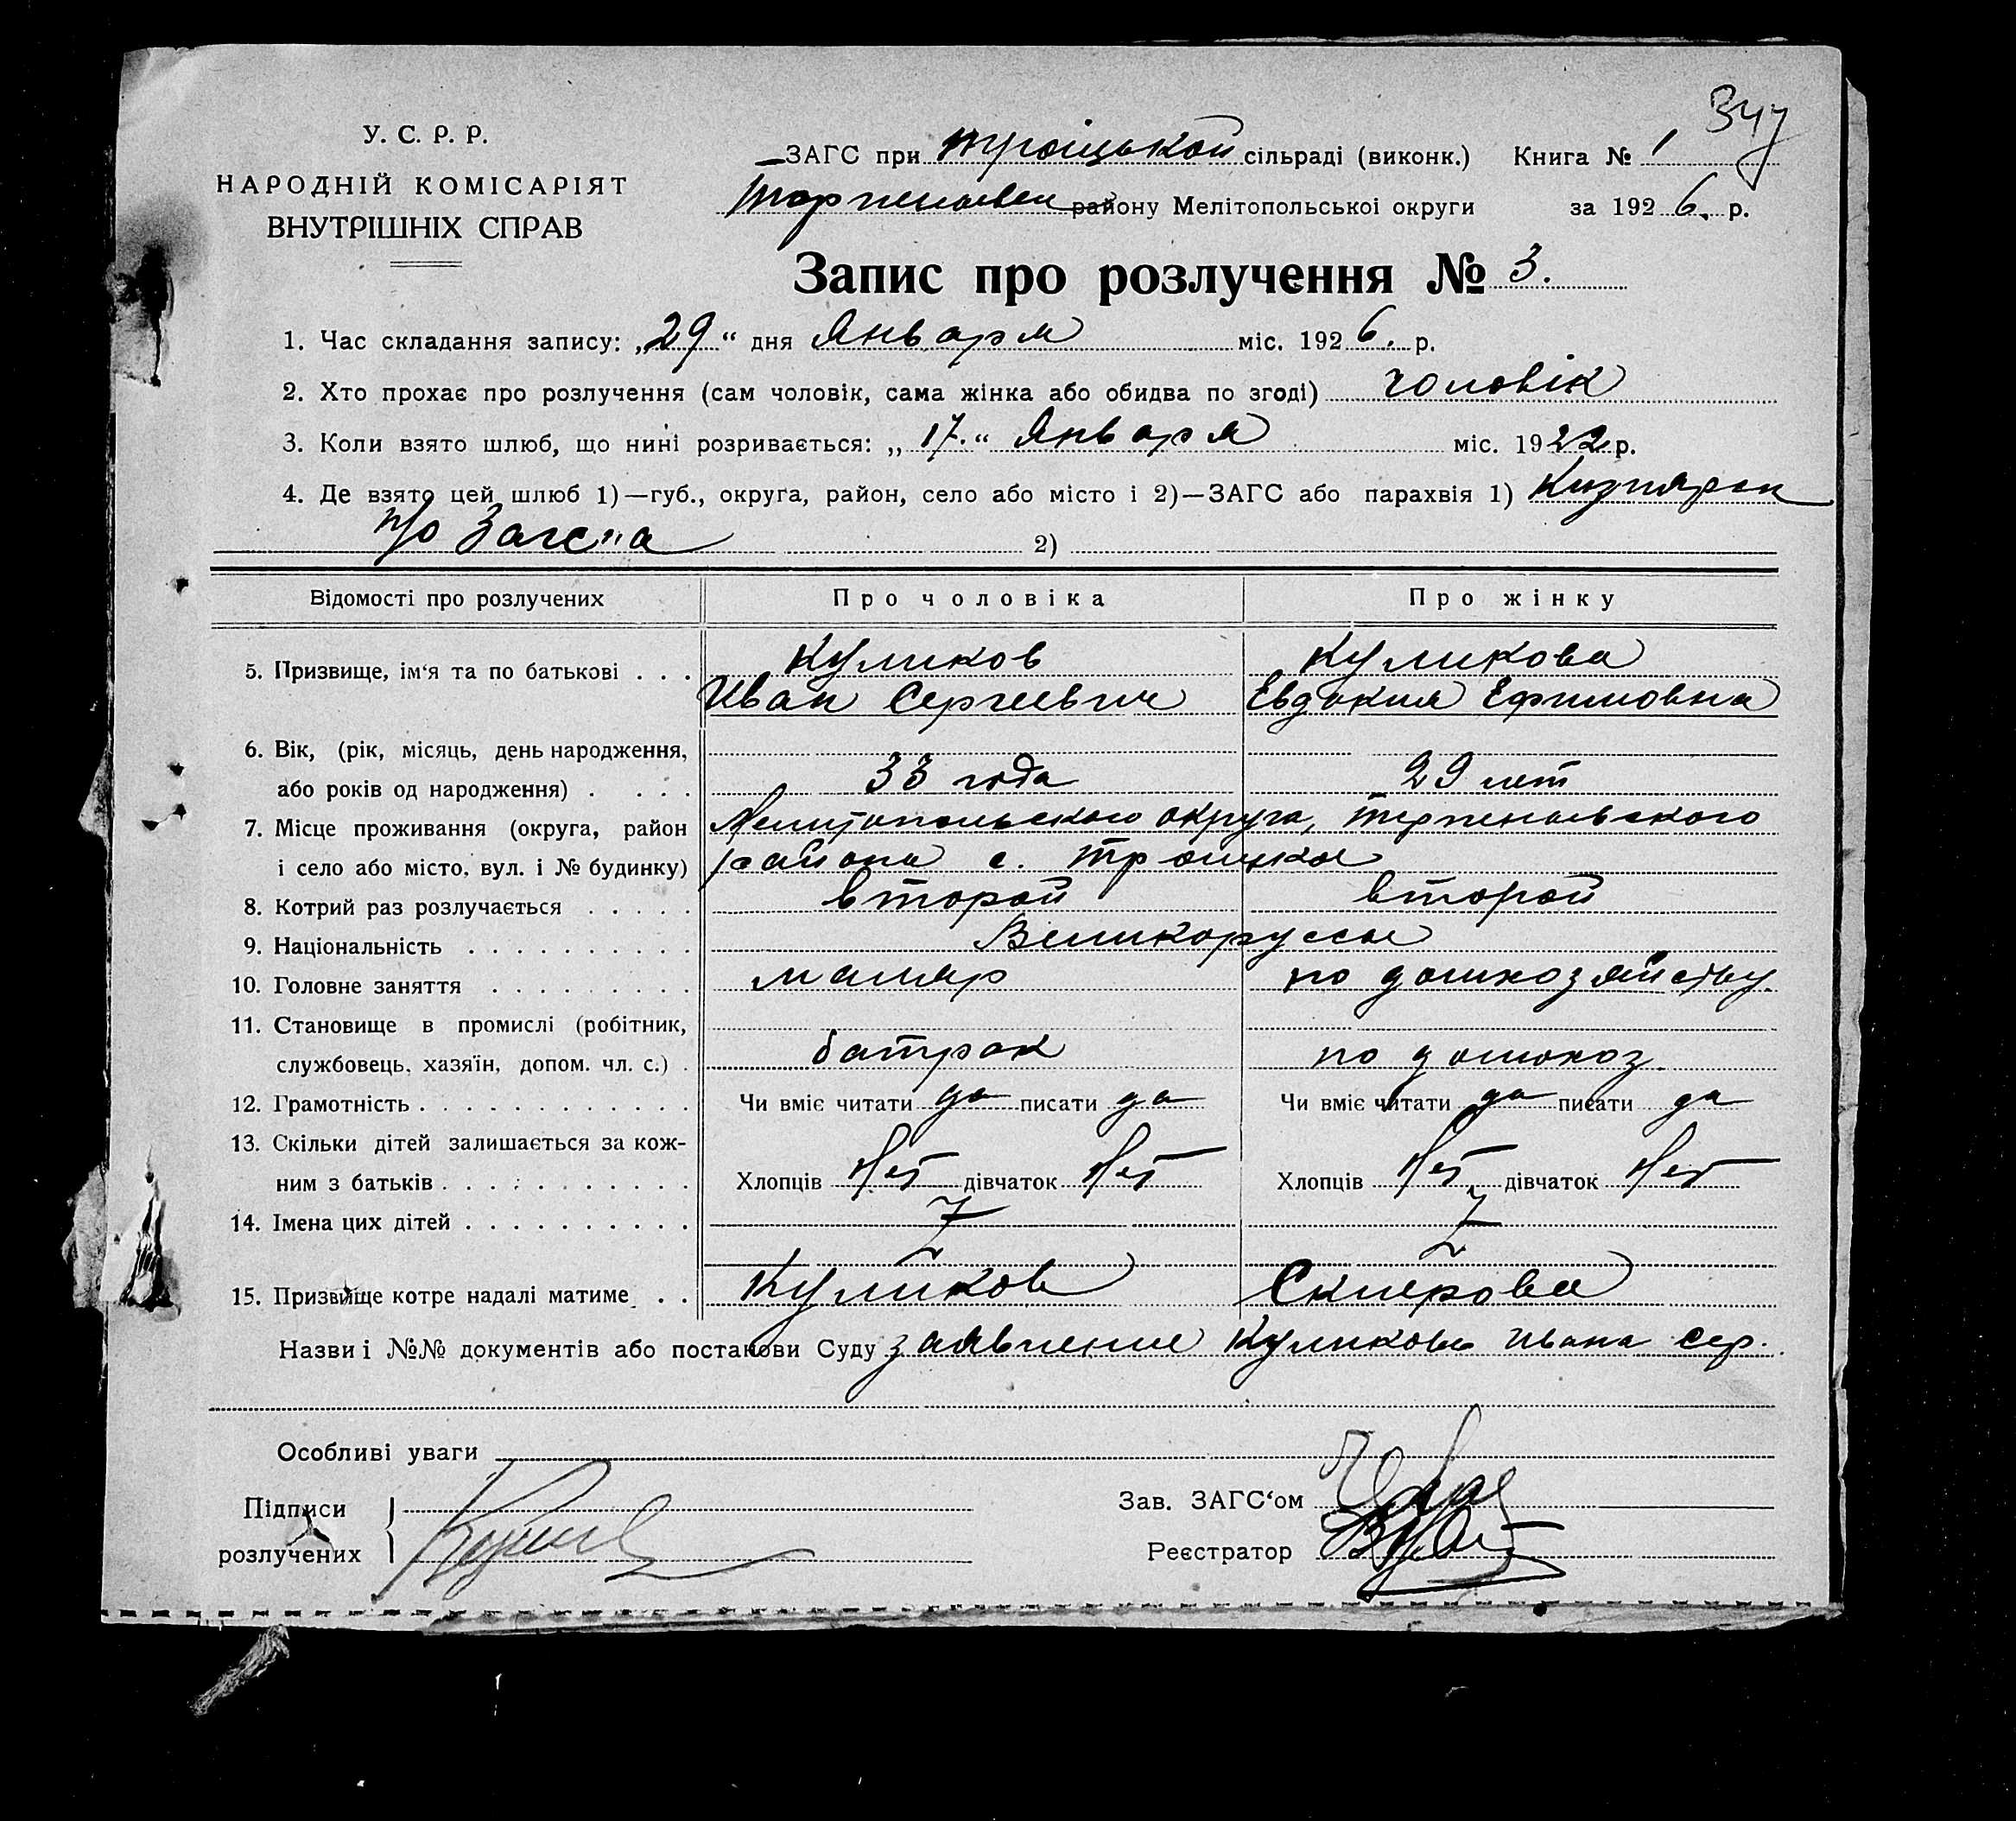 347
У. С. Р. Р.
НАРОДНІЙ КОМІСАРІЯТ
ВНУТРІШНІХ СПРАВ
ЗАГС при троіцькой сільраді (виконк.) Книга № 1
району Мелітопольськоі округи за 1926. р.
Запис про розлучення № 3.
1. Час складання запису: „29“ дня Января міс. 1926. р.
2. Хто прохає про розлучення (сам чоловік, сама жінка або обидва по згоді) чоловік
3. Коли взято шлюб, що нині розривається: „17.“ Января міс. 1922 р.
4. Де взято цей шлюб 1)—губ., округа, район, село або місто і 2)—ЗАГС або парахвія 1)
2)
Відомості про розлучених Про чоловіка Про жінку
5. Призвище, ім‘я та по батькові . . . Куликов Куликова
Иван Сергеевич Евдокия Ефимовна
6. Вік, (рік, місяць, день народження,
або років од народження) . . . . 33 года 29 лет
7. Місце проживання (округа, район Мелитопольского округа, терпеньевского
і село або місто, вул. і № будинку) района с. троицкое
8. Котрий раз розлучається . . . . . второй второй
9. Національність . . . . . . . . . . Великоруссы
10. Головне заняття . . . . . . . . . маляр по домхозяйству.
11. Становище в промислі (робітник,
службовець, хазяїн, допом. чл. с.) . батрак по домохоз.
12. Грамотність . . . . . . . . . . . . Чи вміє читати да писати да Чи вміє читати да писати да
13. Скільки дітей залишається за кож-
ним з батьків . . . . . . . . . . . Хлопців Нет дівчаток Нет Хлопців Нет дівчаток Нет
14. Імена цих дітей . . . . . . . . . .
15. Призвище котре надалі матиме . . Куликов
Назви і №№ документів або постанови Суду заявление Куликова Ивана Сер.
Особливі уваги
Підписи
розлучених
Зав. ЗАГС‘ом
Реєстратор